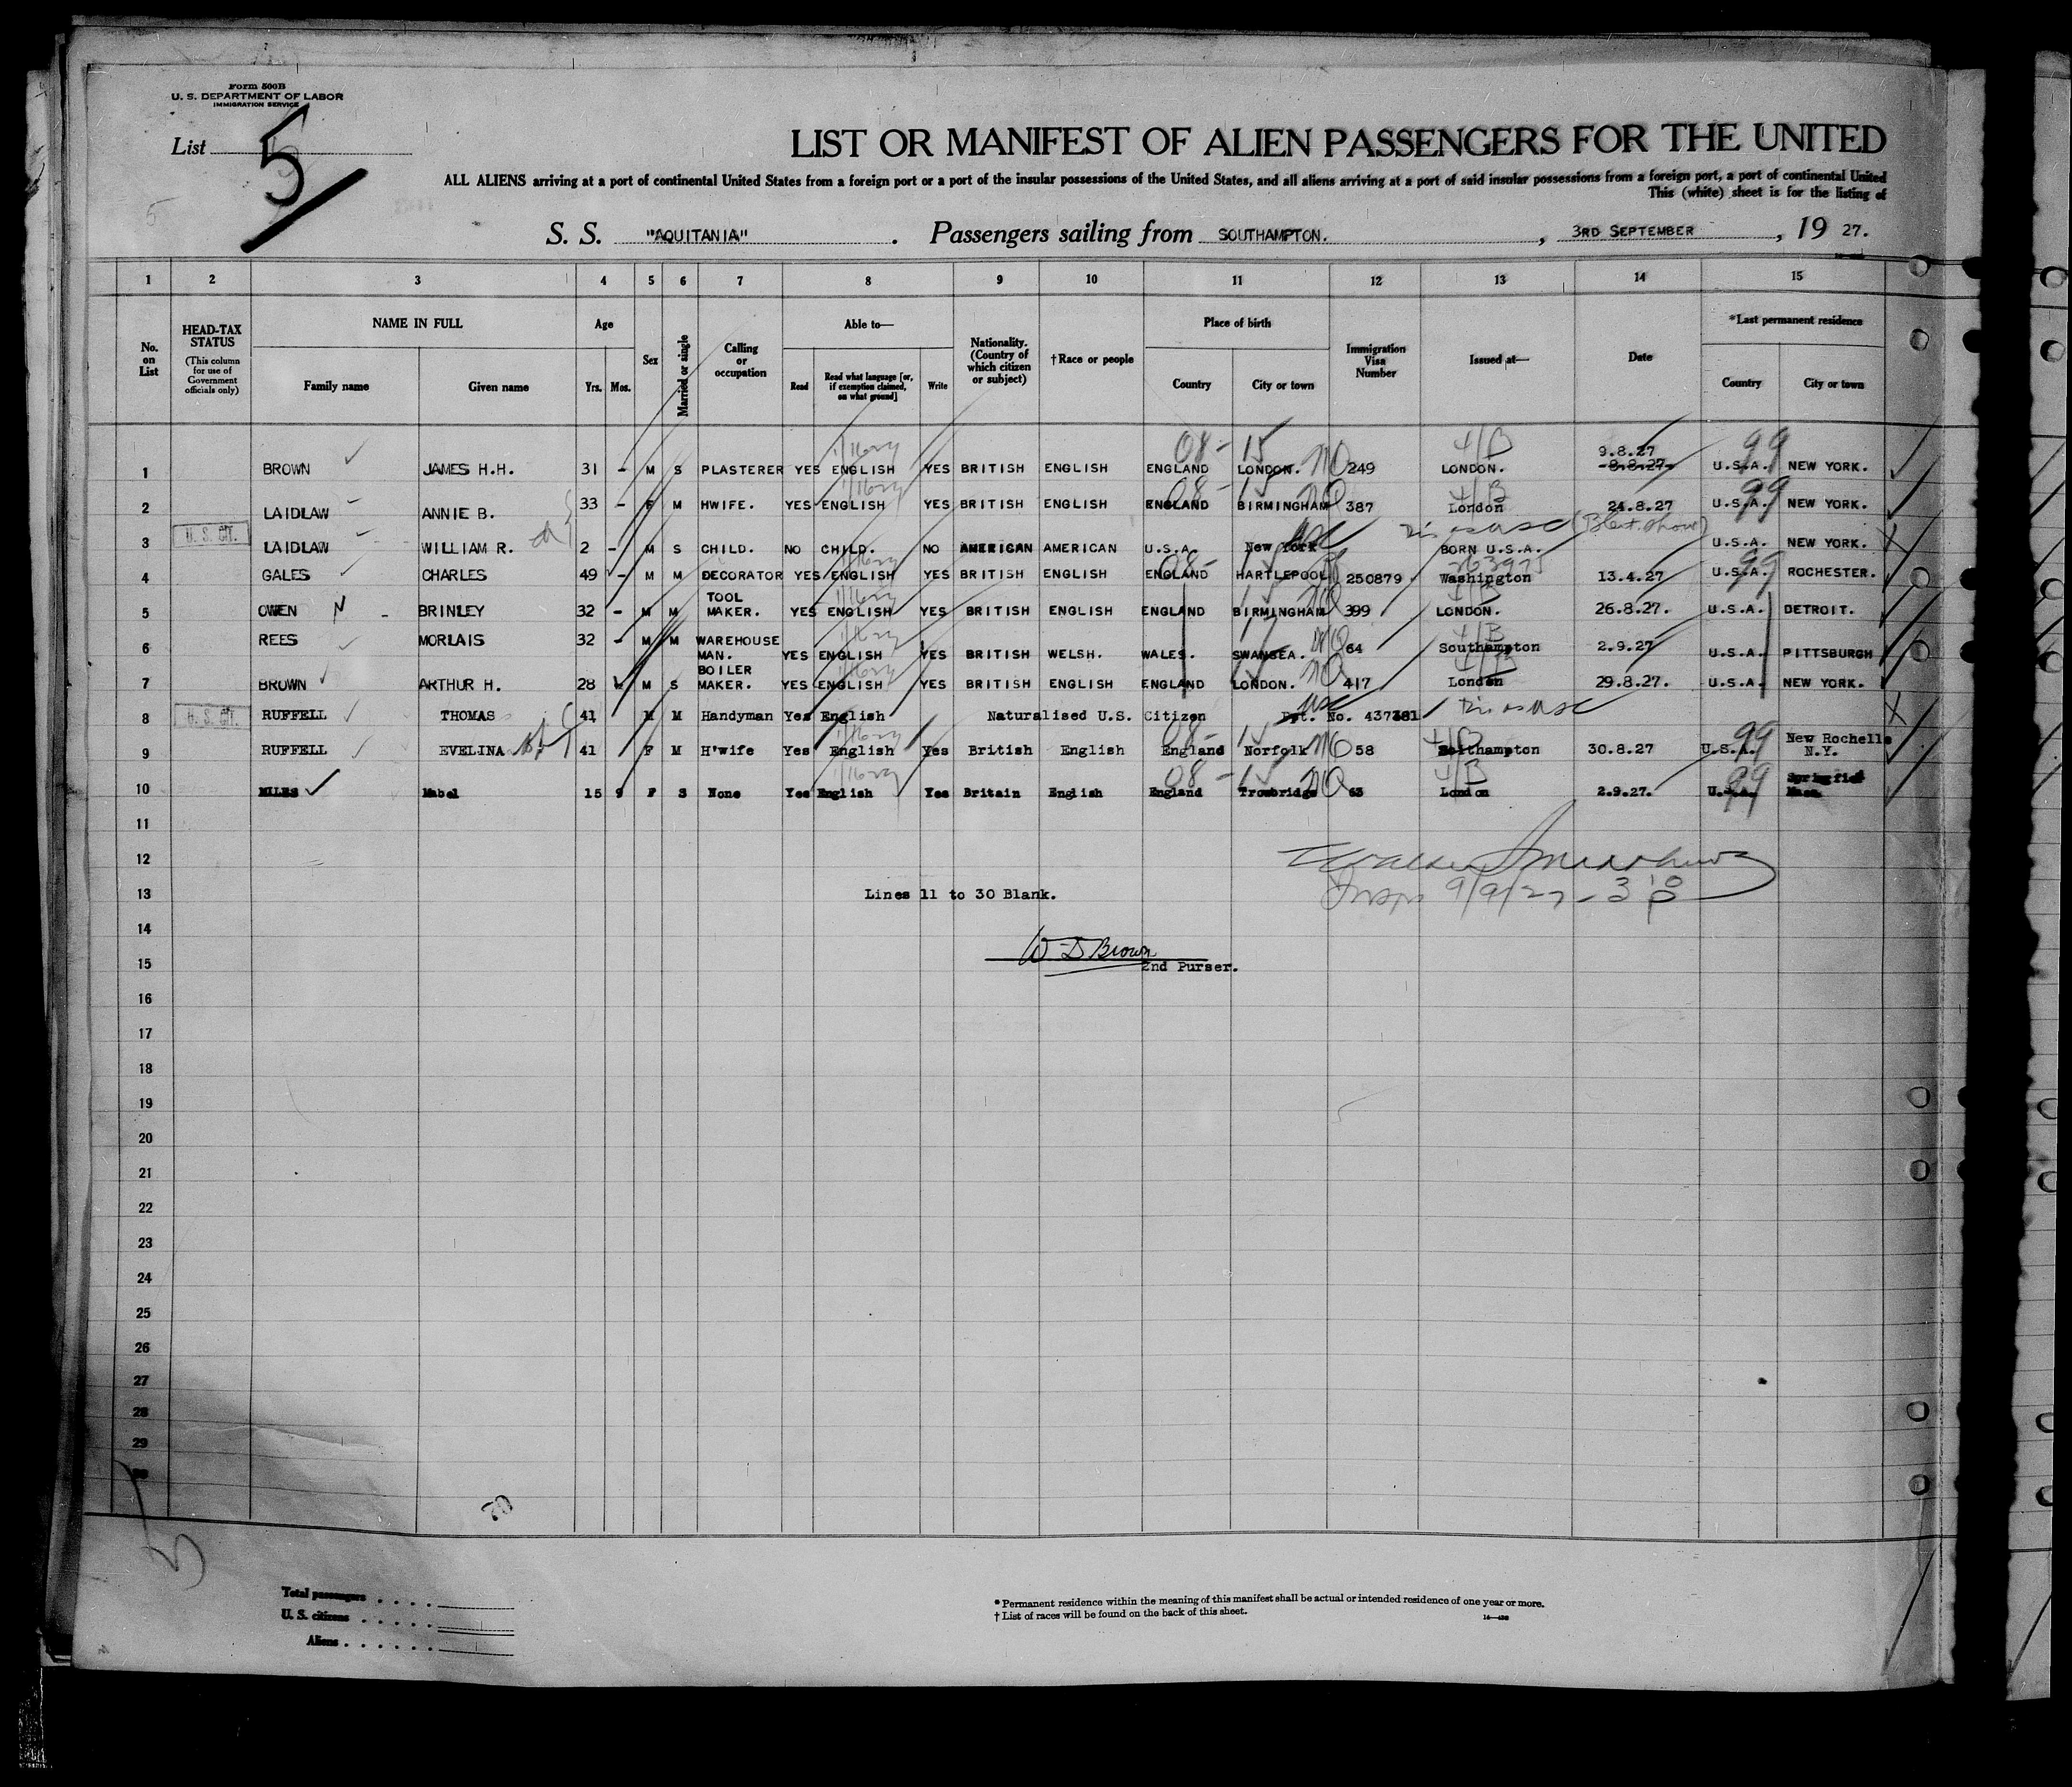 Form 500B
U. S. DEPARTMENT OF LABOR
IMMIGRATION SERVICE
List 5
LIST OR MANIFEST OF ALIEN PASSENGERS FOR THE UNITED
ALL ALIENS arriving at a port of continental United States from a foreign port or a port of the insular possessions of the United States, and all aliens arriving at a port of said insular possessions from a foreign port, a port of continental United
This (white) sheet is for the listing of
S. S. "AQUITANIA". Passengers sailing from SOUTHAMPTON., 3RD SEPTEMBER, 19 27.
1 2 3 4 5 6 7 8 9 10 11 12 13 14 15
No. on List
HEAD-TAX STATUS (This column for use of Government officials only)
NAME IN FULL Family name Given name
Age Yrs. Mos.
Sex
Married or single
Calling or occupation
Able to— Read Read what language [or, if exemption claimed, on what ground] Write
Nationality. (Country of which citizen or subject)
†Race or people
Place of birth Country City or town
Immigration Visa Number
Issued at—
Date
*Last permanent residence Country City or town
08-15 4/B 9.8.27 99
1 BROWN JAMES H.H. 31 - M S PLASTERER YES ENGLISH YES BRITISH ENGLISH ENGLAND LONDON. NQ 249 LONDON. 8.8.27 U.S.A. NEW YORK.
2 LAIDLAW ANNIE B. 33 - F M HWIFE. YES ENGLISH YES BRITISH ENGLISH ENGLAND BIRMINGHAM 387 London 24.8.27 U.S.A. NEW YORK.
3 U.S. CIT. LAIDLAW WILLIAM R. 2 - M S CHILD. NO CHILD. NO AMERICAN AMERICAN U.S.A. New York USC BORN U.S.A. U.S.A. NEW YORK.
4 GALES CHARLES 49 - M M DECORATOR YES ENGLISH YES BRITISH ENGLISH ENGLAND HARTLEPOOL 250879 Washington 13.4.27 U.S.A. ROCHESTER.
5 OWEN BRINLEY 32 - M M TOOL MAKER. YES ENGLISH YES BRITISH ENGLISH ENGLAND BIRMINGHAM 399 LONDON. 26.8.27. U.S.A. DETROIT.
6 REES MORLAIS 32 - M M WAREHOUSE MAN. YES ENGLISH YES BRITISH WELSH. WALES. SWANSEA. 64 Southampton 2.9.27 U.S.A. PITTSBURGH
7 BROWN ARTHUR H. 28 - M S BOILER MAKER. YES ENGLISH YES BRITISH ENGLISH ENGLAND LONDON. 417 London 29.8.27. U.S.A. NEW YORK.
8 U.S. CIT. RUFFELL THOMAS 41 M M Handyman Yes English Naturalised U.S. Citizen No. 437381
9 RUFFELL EVELINA 41 F M H'wife Yes English Yes British English England Norfolk 58 Southampton 30.8.27 U.S.A. New Rochelle N.Y.
10 MILES Mabel 15 9 F S None Yes English Yes Britain English England Trowbridge 63 London 2.9.27. U.S.A. Springfield Mass.
11
12
13 Lines 11 to 30 Blank. 9/9/27
14
W D Brown
15 2nd Purser.
16
17
18
19
20
21
22
23
24
25
26
27
28
29
30
70
Total passengers
U. S. citizens
Aliens
* Permanent residence within the meaning of this manifest shall be actual or intended residence of one year or more.
† List of races will be found on the back of this sheet.